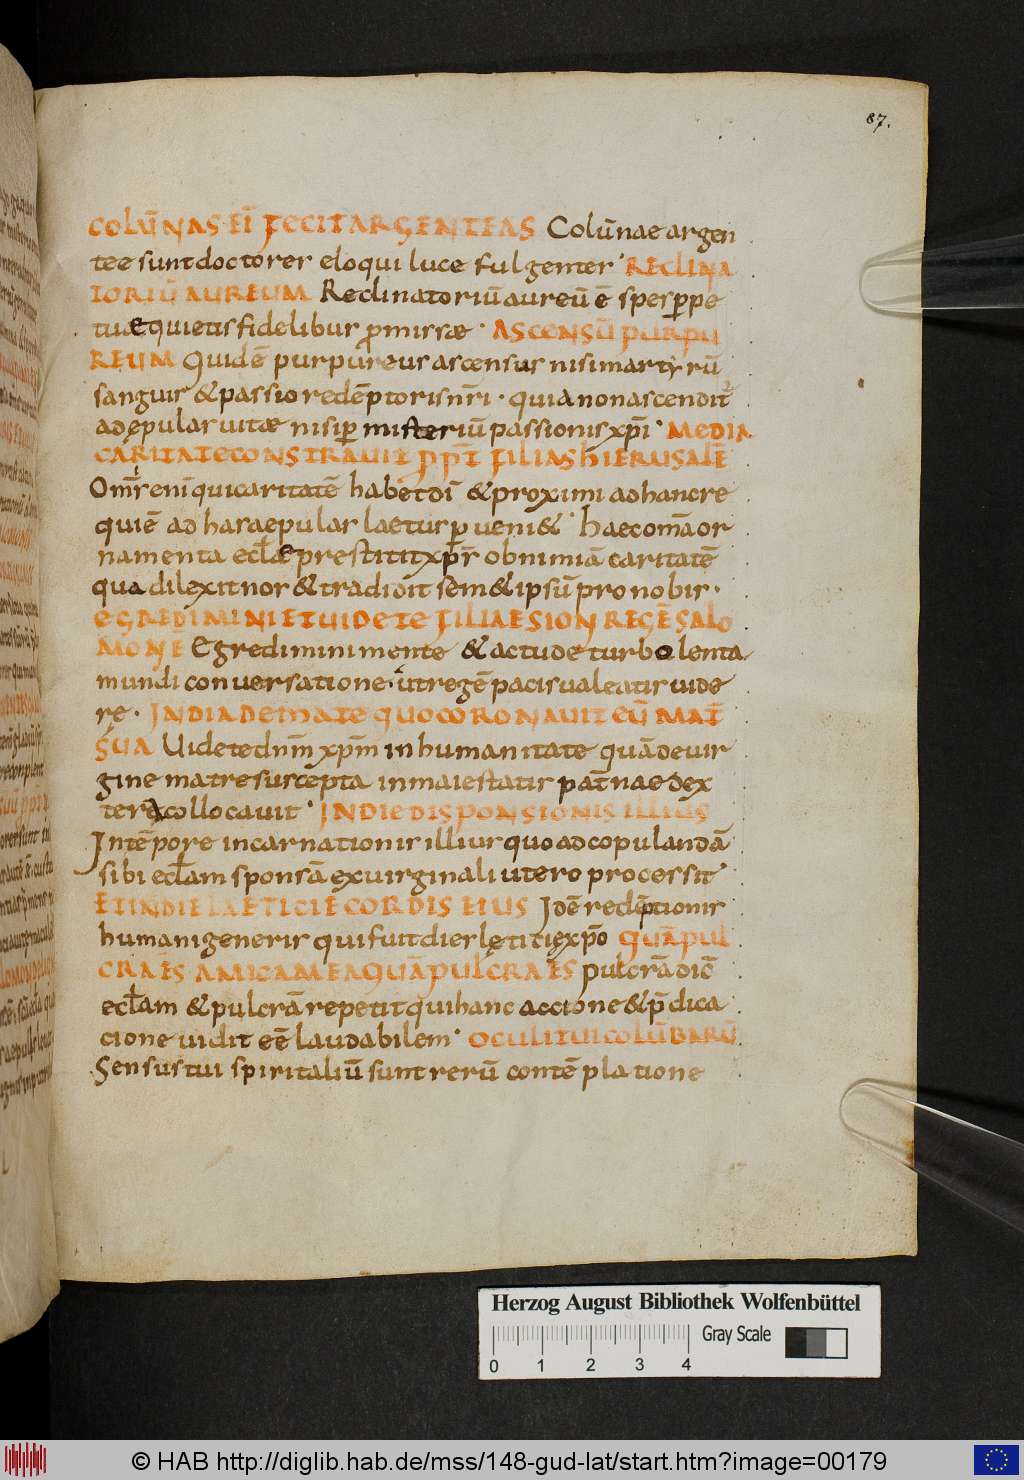 87.
COLŪNAS EĪ FECIT ARGENTEAS Colūnae argen
tee sunt doctorer eloqui luce fulgenter RECLINA
TORIŪ AUREUM Reclinatoriū aureū ē spes ꝑpe
tuae quietis fidelibur ꝓmissae · ASCENSŪ PURPU
REUM Quidē purpureus ascensus nisi martyrū
sanguis & passio redēptoris nr̄i · quia non ascendit᷑
ad epular vitae nisi ꝑ misteriū passionis xp̄i · MEDIA
CARITATE CONSTRAVIT ꝑpt̄ FILIAS HIERUSALĒ
Om̄s enī qui caritatē habet dī & proximi ad hanc re
quiē ad har aepular laetur ꝑveni& · haec omā or
namenta eccłae prestitit xp̄r ob nimiā caritatē
qua dilexit nor & tradidit sem&ipsū pro nobir ·
EGREDIMINI ET VIDETE FILIAE SION REGĒ SALO
MONĒ Egredimini mente & actu de turbolenta
mundi conversatione · ut regē pacis valeatis vide
re · IN DIADEMATE QUO CORONAVIT EŪ MAT̄
SUA Videte dnm̄ xpm̄ in humanitate quā de vir
gine matre suscepta in maiestatis pat̄nae dex
tera collocavit · IN DIE DISPONSIONIS ILLIUS
In tēpore incarnationis illius quo ad copulandā
sibi eccłam sponsā ex virginali utero processit
ET IN DIE LAETICIE CORDIS EIUS Idē redēptionis
humani generis qui fuit dies lętitię xp̄o QUĀ PUL
CRA ĒS AMICA MEA QUĀ PULCRA ĒS pulcrā dic̄
eccłam & pulcrā repetit qui hanc accione & p̄dica
cione vidit eē laudabilem · OCULI TUI COLŪBARŪ
Sensus tui spiritaliū sunt rerū contēplatione
Herzog August Bibliothek Wolfenbüttel
Gray Scale
0 1 2 3 4
© HAB http://diglib.hab.de/mss/148-gud-lat/start.htm?image=00179